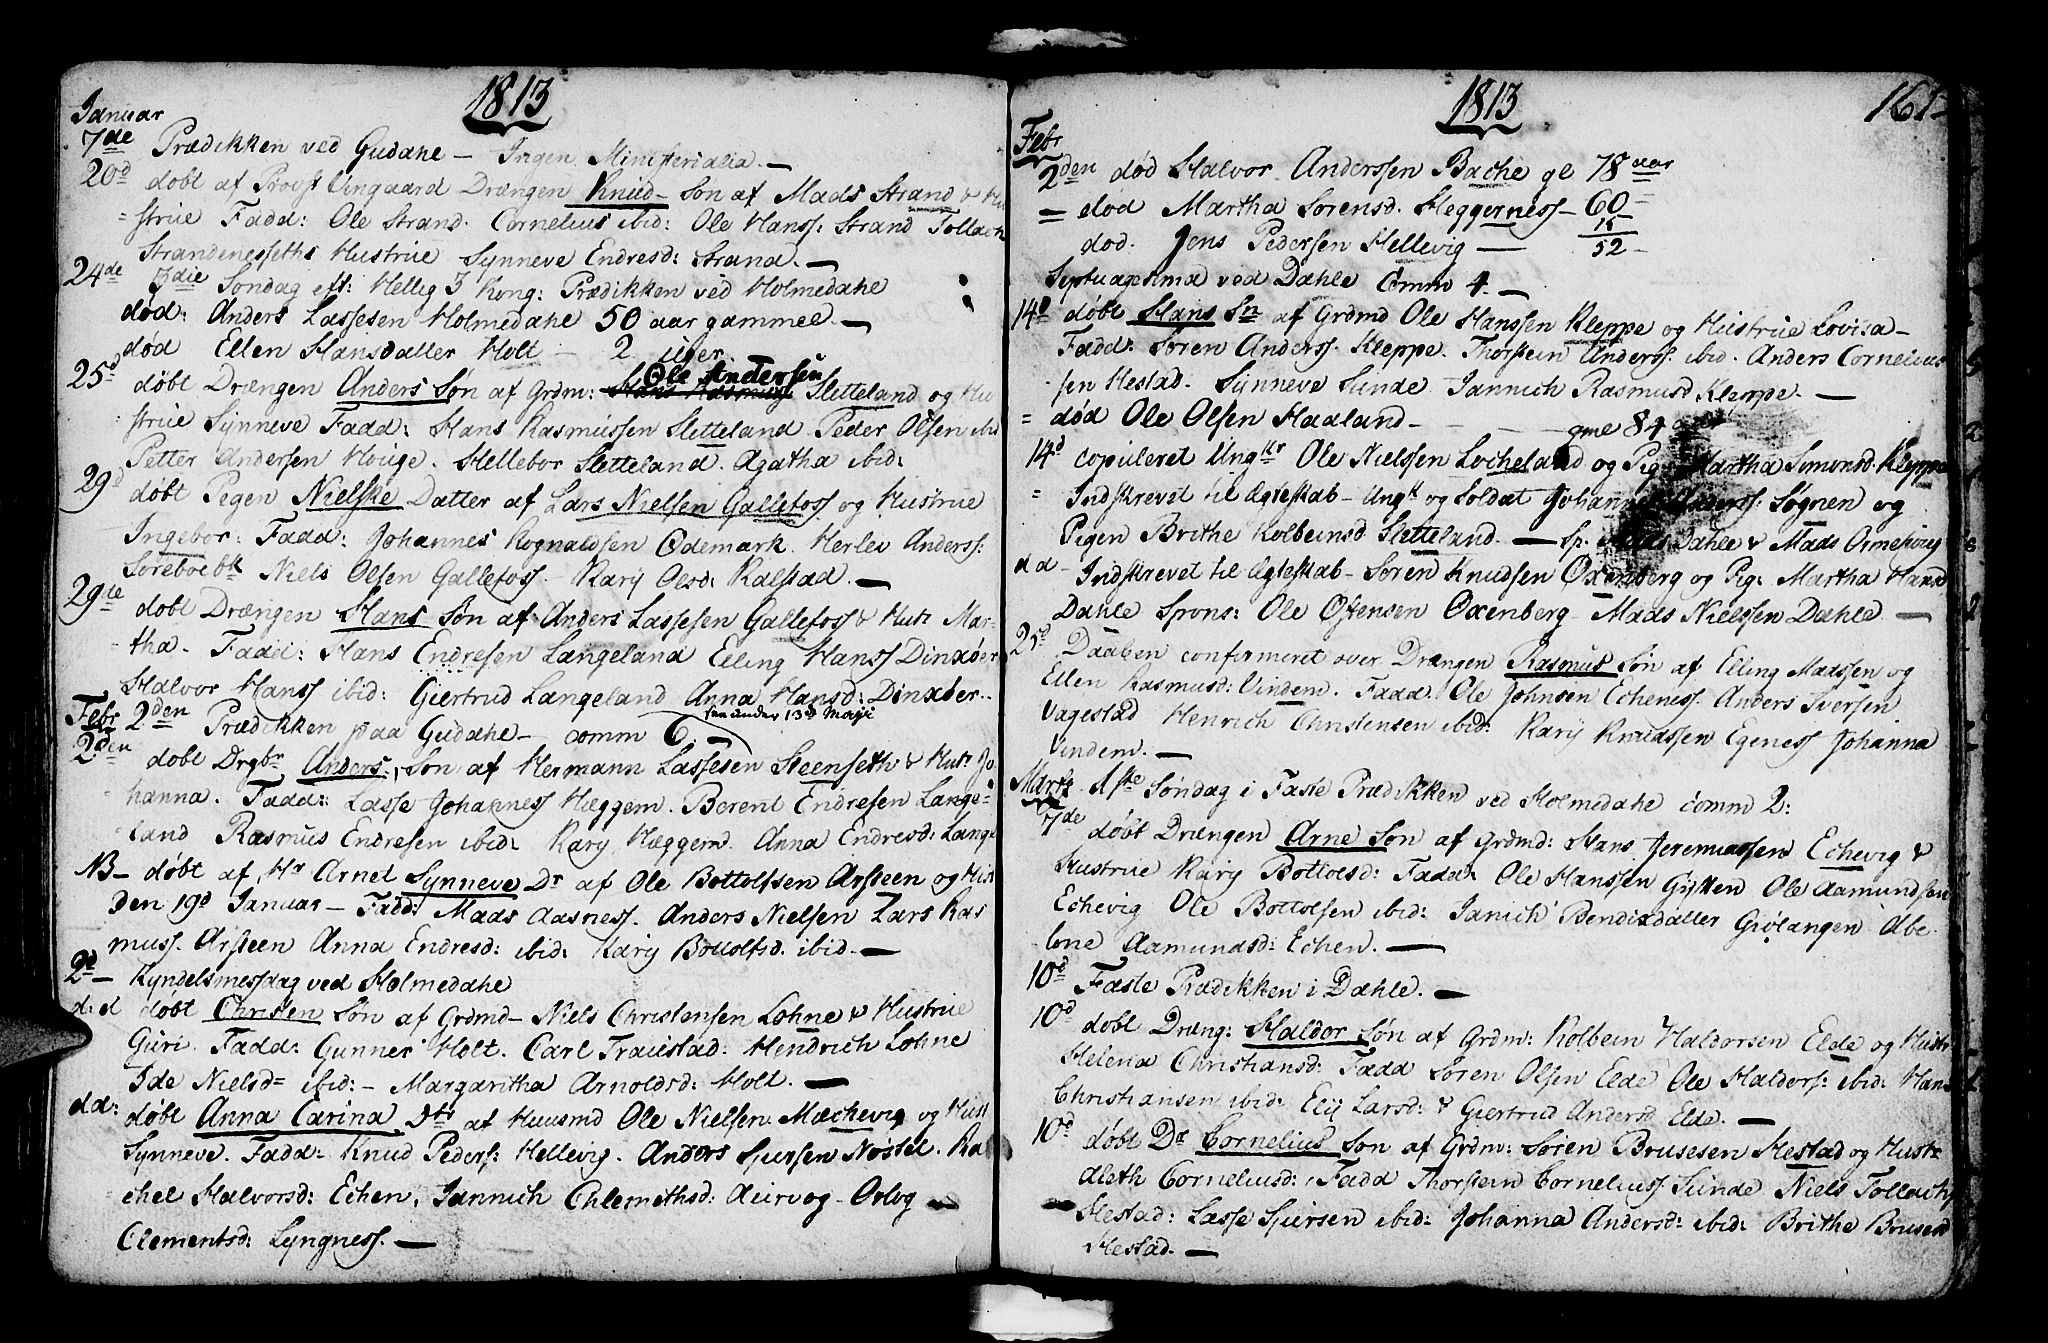 1813
Januar
7de Prædikken ved Gudahe – Ingen Ministerialia. –
20d dobt af Provst Vingaard Drængen Knud – Søn af Mads Strand &
strue Fadd: Ole Strand. Cornelius ibid: Ole Hanss: Strand Tollach
Strandenesseths Hustrue Synneve Endresd: Strand. –
24de 3die Søndag eft: Hellig 3 Kong: Prædikken ved Holmedahe
død: Anders Lassesen Holmedahe 50 aar gammel. –
død Ellen Hansdatter Holt – 2 uger.
Ole Andersen
25d døbt Drængen Anders Søn af Grdm: Hans Rasmuss Sletteland og Hu
strue Synneve Fadd: Hans Rasmussen Sletteland Peder Olsen ibid
Petter Andersen Houge. Hellebor Sletteland. Agatha ibid:
29d døbt Pigen Nielske Datter af Lars Nielsen Gallefoss og Hustrue
Ingebor: Fadd: Johannes Rognaldsen Ødemark. Herlev Anderss:
Niels Olsen Gallefoss. Kary Olsd: Kalstad. –
29de dobt Drængen Hans Søn af Anders Lassesen Gallefoss & Hutr Mar-
tha. Fadd: Hans Endresen Langeland Elling Hanss Dinxdør
Halvor Hanss ibid: Giertrud Langeland Anna Hansd: Dinxdør..
see under 13d Maji
Febr 2den Prædikken paa Gudahe – comm 6. –
2den dobt Drgbr Anders, Søn af Hermann Lassesen Steenseth & Hutr Jo
hanna. Fadd: Lasse Johanness Hæggem. Berent Endresen Lange=
land Rasmus Endresen ibid: Kary Hæggem. Anna Endresd: Langl
NB – døbt af Hr Arnet Synneve Dr af Ole Bottolfsen Arsteen og Hust
den 19d Januar – Fadd: Mads Aasness. Anders Nielsen Lars Ras
muss. Arsteen Anna Endresd: ibid: Kary Bottolfsd. ibid. –
2d – Kyndelsmessdag ved Holmedahe
d: d døbt Christen Søn af Grdmd – Niels Christensen Lohne & Hustrue
Guri. Fadd: Gunner Holt. Carl Traustad: Hendrich Lohne
Ide Nielsd= ibid: – Margaritha Arnoldsd: Holt. –
dd: døbt Anna Carina Dtr af Huusmd Ole Nielsen Mæchevig og Hust
Synneve. Fadd: Knud Peders: Hellevig. Anders Sjursen Nøstel. Ra
chel Halvorsd: Echen, Jannich Chlemethsd: Aurvog – Oolog
Clementsd: Lyngness. –
1813 161
Febr
2den død Halvor Anderssen Bache gl 78 aar
= død Martha Sørensd. Heggerness – 60 –
15
død. Jens Pedersen Hellevig – 52 –
Septuagesima ved Dahle Comm 4. –
14d døbt Hans Sn af Grdmd Ole Hanssen Kleppe og Hustrue Lovisa –
Fadd: Søren Anderss. Kleppe. Thorstein Anderss. ibid. Anders Cornelius
sen Hestad. Synneve Sunde. Jannich Rasmusd Kleppe. –
= død Ole Olsen Haaland – gml 84
14d copuleret Ungkr Ole Nielssen Locheland og Pig Martha Simonsd. Kleppe
= Indskrevet til Ægteskab – Ungk og Soldat Johannes Anderss: Søgnen og
Pigen Brithe Kolbeinsd Sletteland. – Sp. Dahle & Mads Ormehoug
dd – Indskrevet til Ægteskab – Søren Knudsen Oxenberg og Pig: Martha Hansd
Dahle Spons: Ole Ostensen Oxenberg – Mads Nielssen Dahle –
25d Daaben confirmeret over Drængen Rasmus Søn af Elling Massen og
Ellen Rasmusd: Vindem. Fadd: Ole Johnsen Echeness. Anders Iversen
Vagestad Henrich Christensen ibid: Kary Knudssen Egeness Johanna
Vindem. –
Marts 1ste Søndag i Faste Prædikken ved Holmedahe comm 2:
7de døbt Drængen Arne Søn af Grdmd: Hans Jeremiassen Echevig &
Hustrue Kary Bottolsd: Fadd: Ole Hanssen Gykken Ole Aamundsen
Echevig Ole Bottolsen ibid: Janich Bendixdatter Giølangen Abe-
lone Aamundsd: Echen. –
10d Faste Prædikken i Dahle. –
10d dobt Dræng: Haldor Søn af Grdm: Kolbein Haldorsen Elde og Hustr
Helena Christiansd: Fadd Søren Olsen Elde Ole Haldors: ibid: Hans
Christiansen ibid: Ely Larsd: & Giertrud Andersd Elde. –
10d døbt Dr Cornelius Søn af Grdm: Søren Brusesen Hestad og Hustr
Aleth Corneliusd: Fadd Thorstein Corneliuss Sunde Niels Tollachs
Hestad: Lasse Sjursen ibid: Johanna Andersd: ibid: Brithe Brusesd
Hestad. –